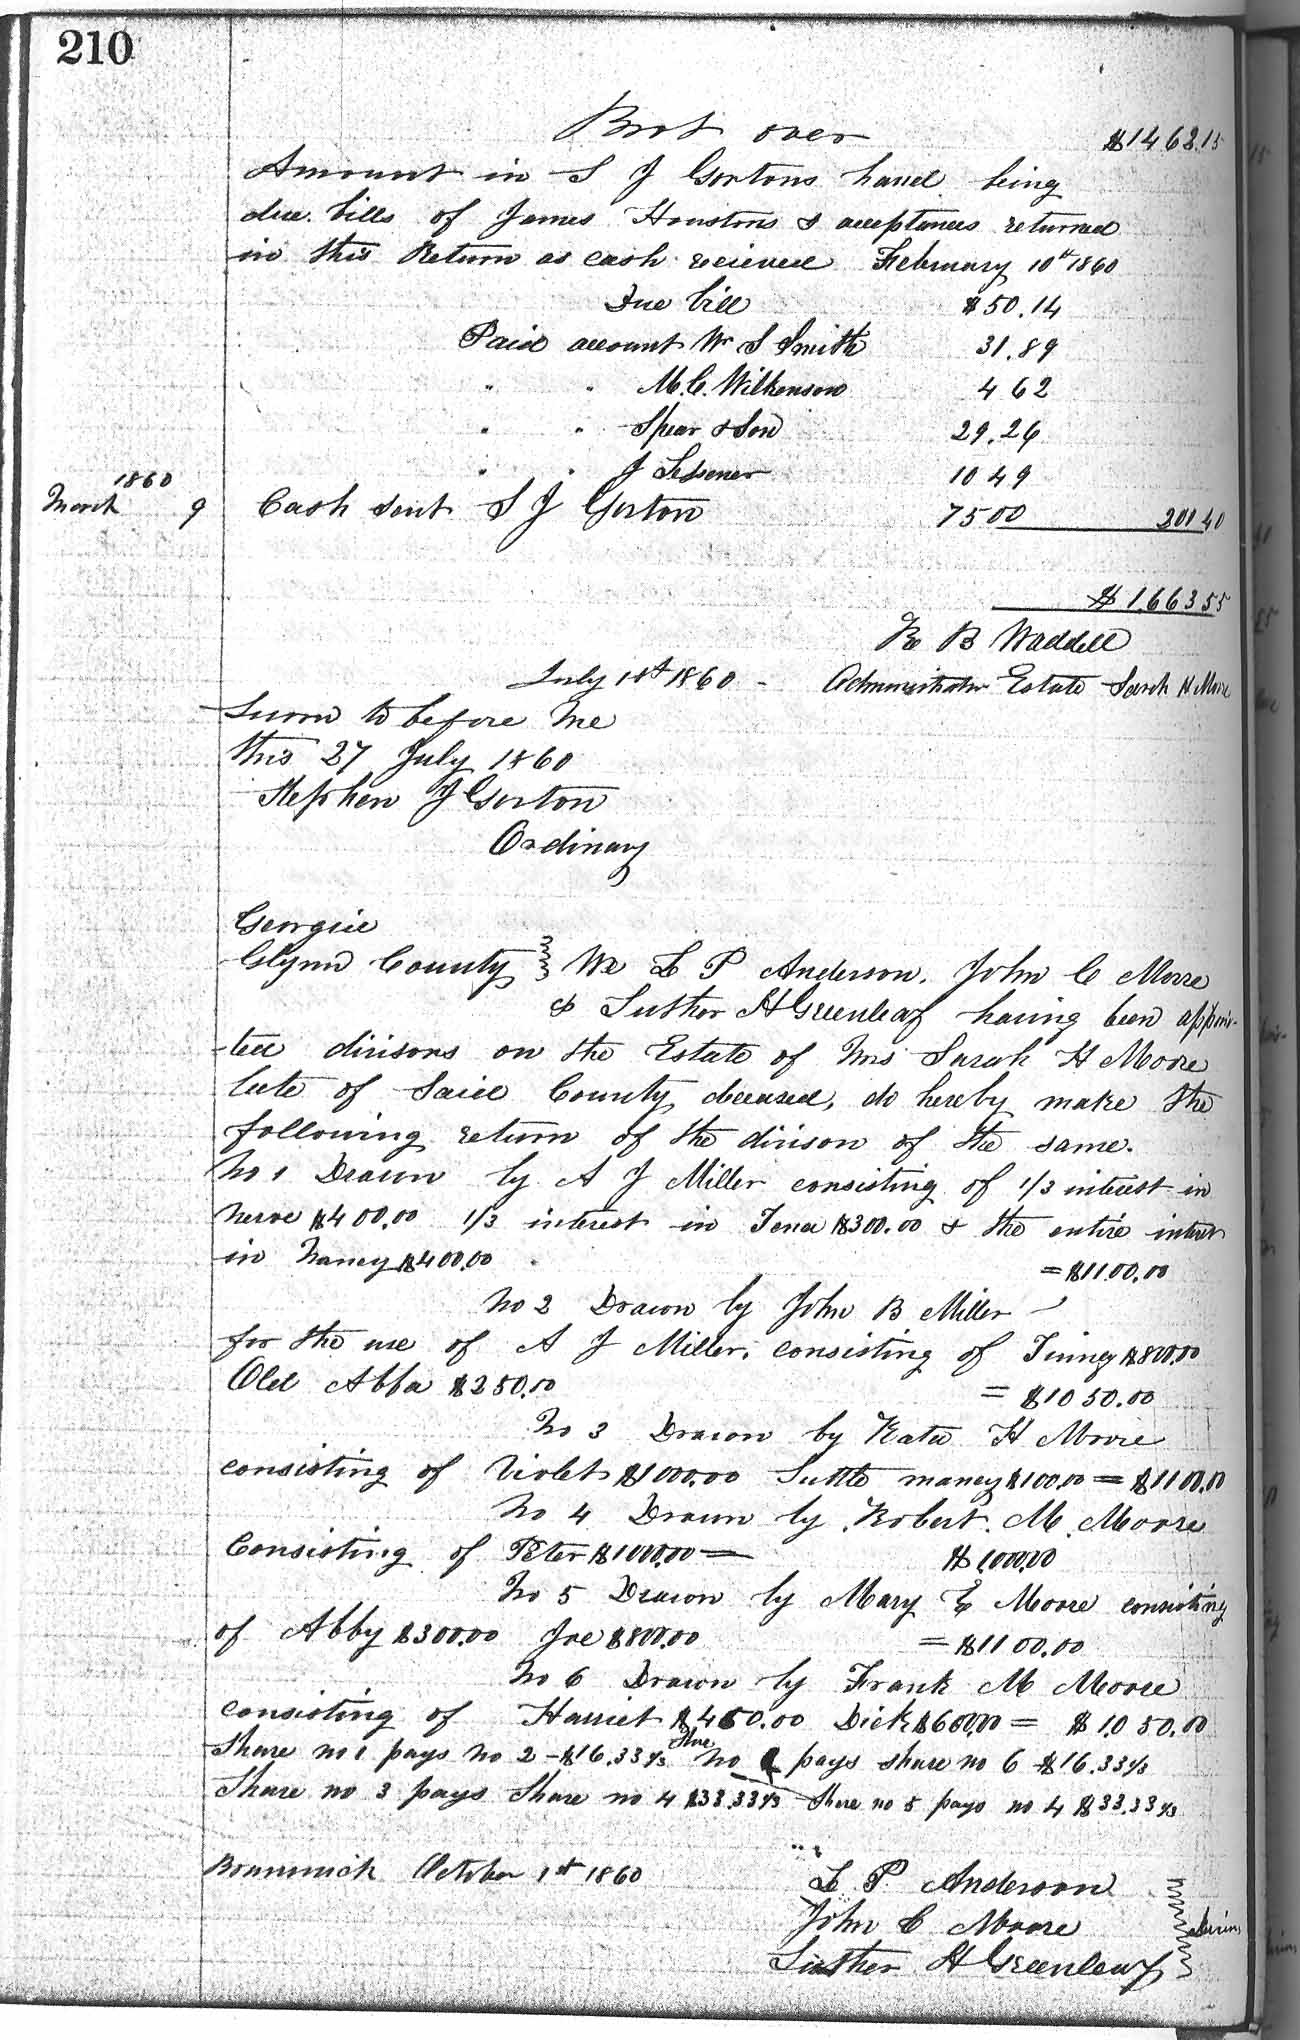 210
Brot over $1462.15
Amount in S J Gortons hand being
due bills of James Houstons & acceptances returned
in this Return as cash recieved February 10th 1860
Due bill $50.14
Paid account W S Smith 31.89
" " M. C. Wilkenson 4 62
" " Spear & Son 29.26
" " J Lessener 10 49
1860
March 9 Cash sent S J Gorton 75 00 201 40
$1,663 55
R B Waddell
July 18th 1860 - Administrator Estate Sarah H Moore
Sworn to before me
this 27 July 1860
Stephen J Gorton
Ordinary
Georgia
Glynn County } We L P Anderson, John C Moore
& Luther H Greenleaf having been appoin-
-ted divisors on the Estate of Mrs Sarah H Moore
late of Said County, deceased, do hereby make the
following return of the divison of the same.
No 1 Drawn by A J Miller consisting of 1/3 interest in
Nerve $400.00 1/3 interest in Tena $300.00 & the entire interest
in Nancy $400.00 = $1100.00
No 2 Drawn by John B Miller
for the use of A J Miller, consisting of Tinney $800.00
Old Abba $250.00 = $1050.00
No 3 Drawn by Kate H Moore
consisting of Violet $1000.00 Little nancy $100.00 = $1100.00
No 4 Drawn by Robert. M. Moore
Consisting of Peter $1000.00 = $1,000.00
No 5 Drawn by Mary E Moore consisting
of Abby $300.00 Joe $800.00 = $1100.00
No 6 Drawn by Frank M Moore
consisting of Harriet $450.00 Dick $600.00 = $1,050.00
Share no 1 pays no 2 - $16.33 1/3 Share no 1 pays share no 6 $16.33 1/3
Share no 3 pays Share no 4 $33.33 1/3 Share no 5 pays no 4 $33.33 1/3
Brunswick October 1st 1860
L P. Anderson
John C Moore
Luther H Greenleaf